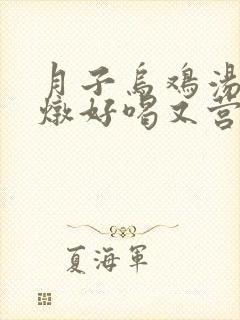 月子乌鸡汤
燉好喝又营
夏海軍